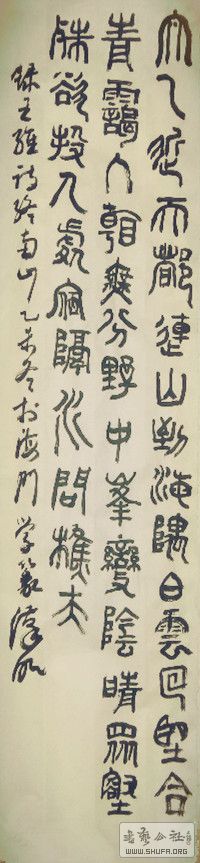 太乙近天都連山到海隅白雲回望合
青靄入看無分野中峯變陰晴眾壑
殊欲投人處宿隔水問樵夫
録王維詩終南山乙未冬於海門 学篆
书艺公社
WWW.SHUFA.ORG